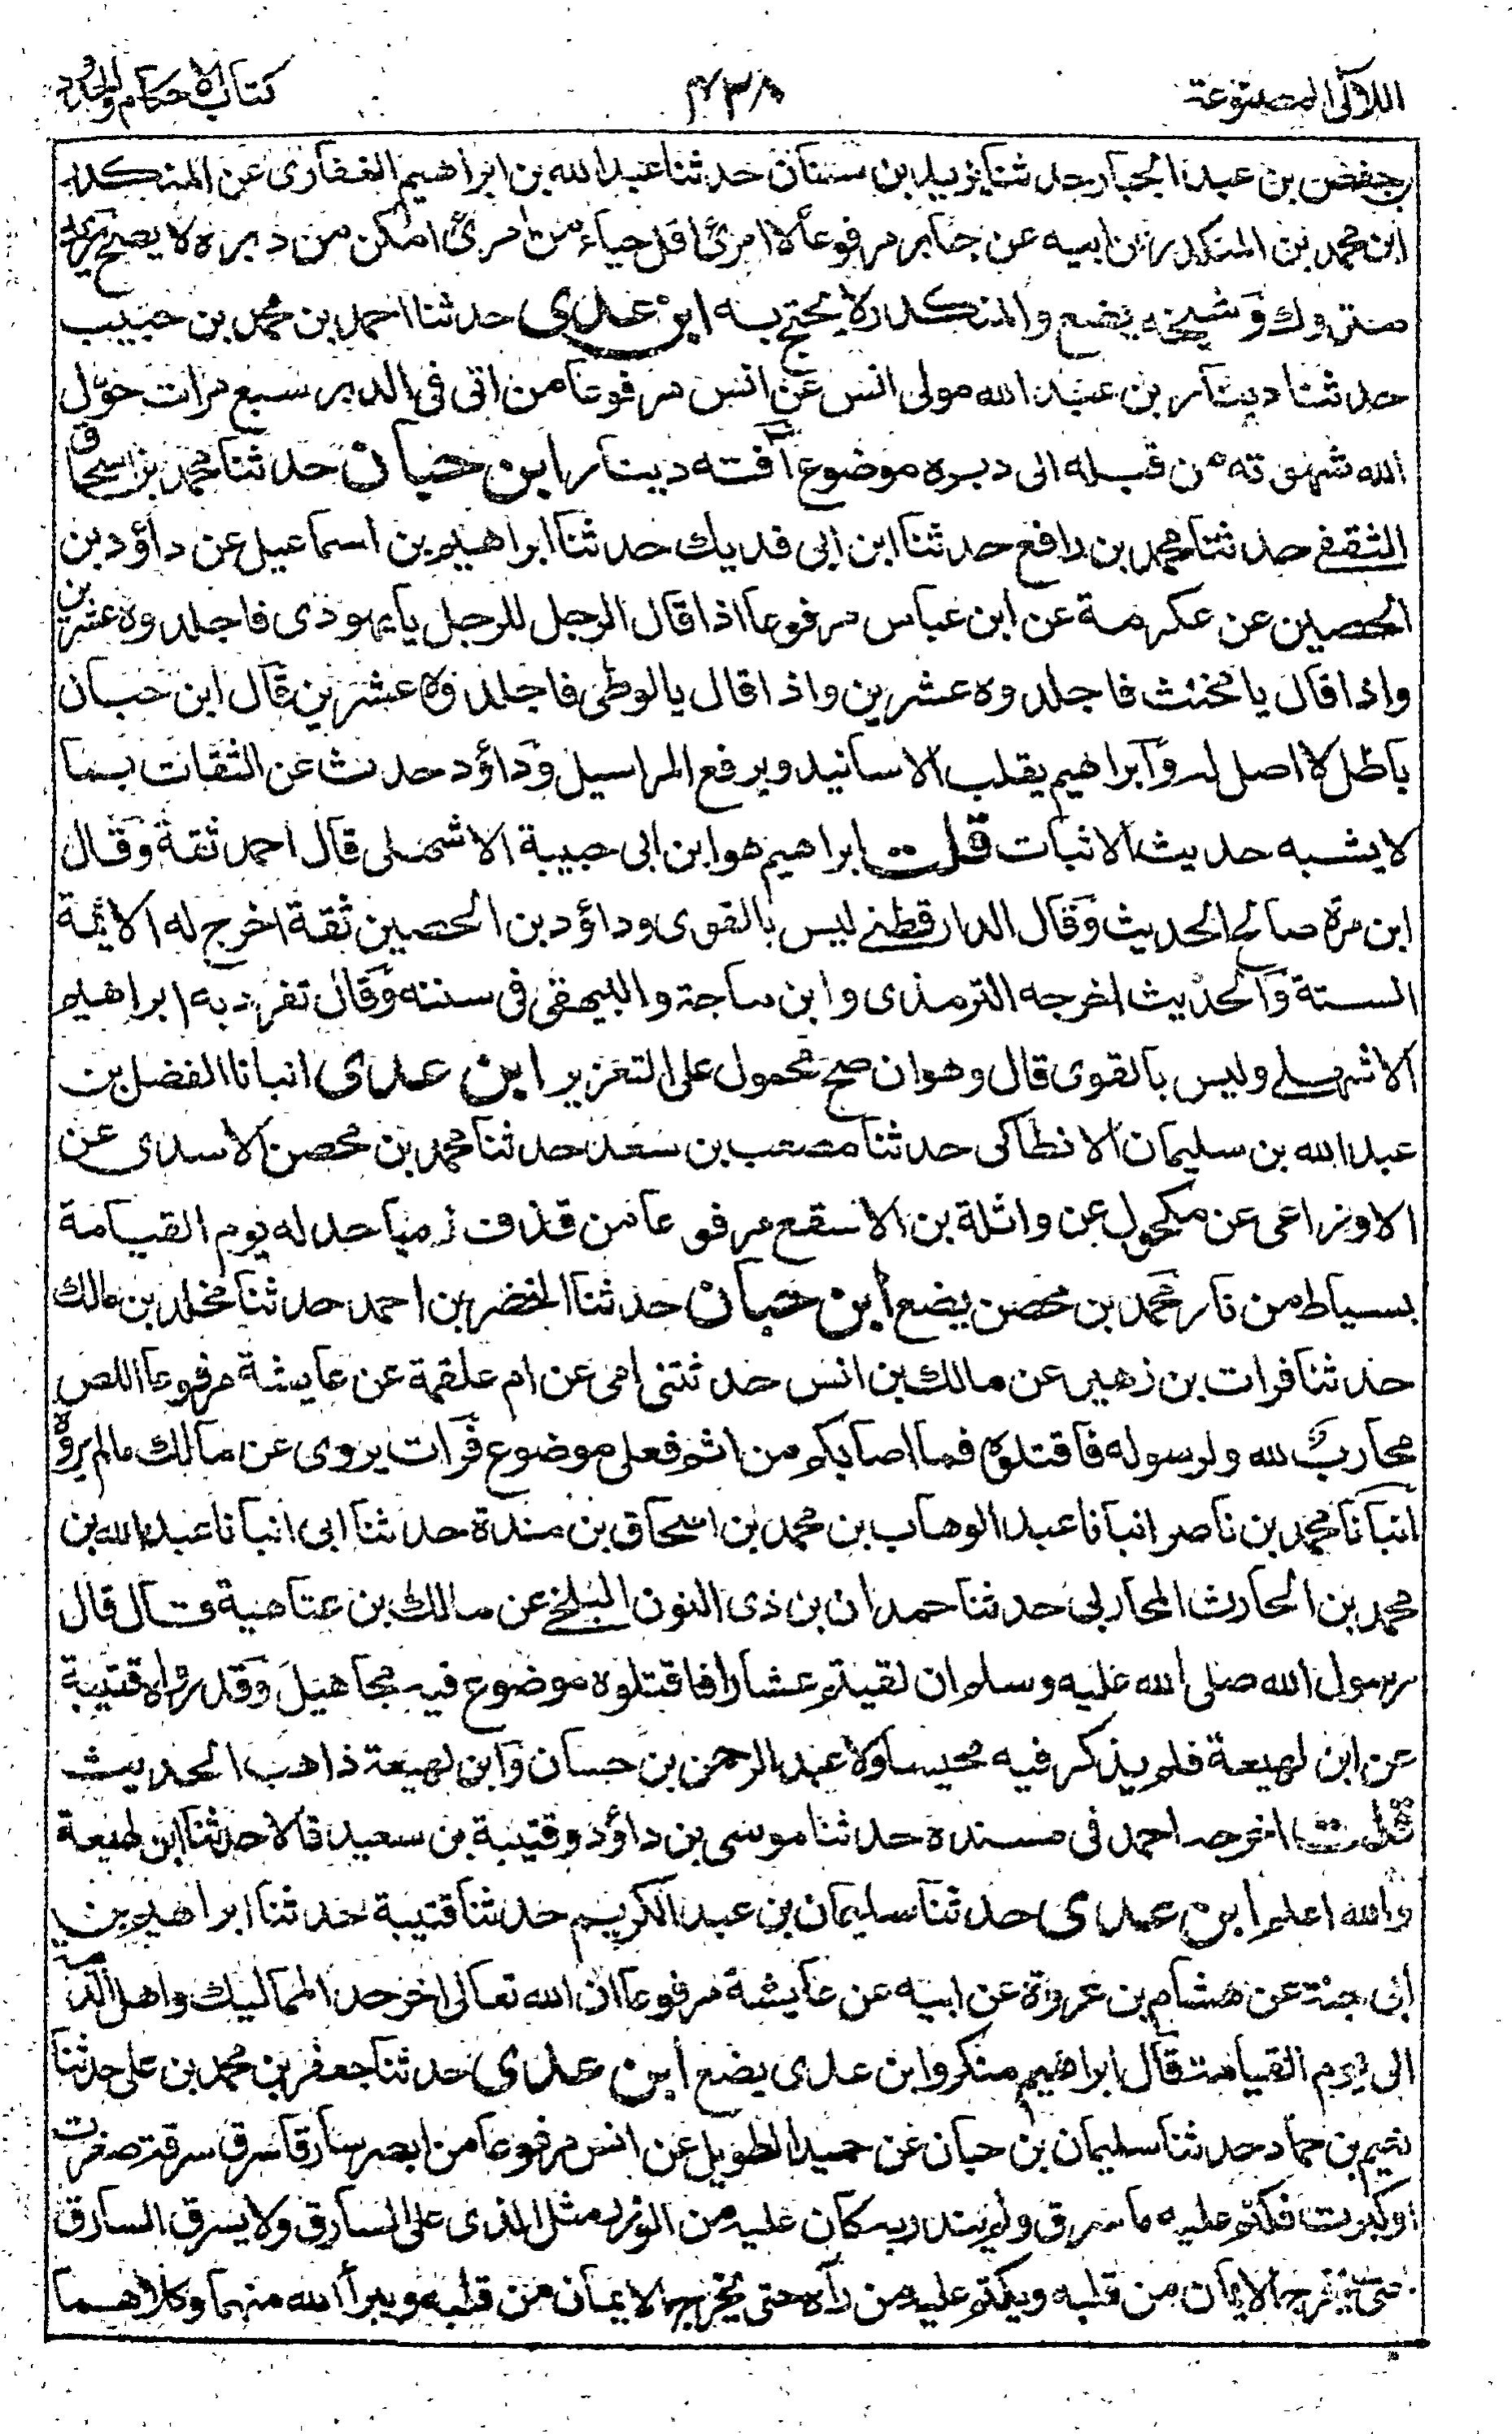 اللآلى المصنوعة
كتاب الاحكام والحدود
حفص بن عبد الجبار حدثنا يزيد بن سنان حدثنا عبد الله بن ابراهيم الغفارى عن المنكدر
ابن محمد بن المنكدر عن ابيه عن جابر مرفوعا لا امرئ اقل حياء من امرئ امكن من دبره لا يصح يزيد
متروك وشيخه يضع والمنكدر لا يحتج به ابن عدى حدثنا احمد بن محمد بن حبيب
حدثنا دينار بن عبد الله مولى انس عن انس مرفوعا من اتى فى الدبر سبع مرات حول
الله شهوته من قبله الى دبره موضوع آفته دينار ابن حبان حدثنا محمد بن اسحاق
الثقفى حدثنا محمد بن رافع حدثنا ابن ابى فديك حدثنا ابراهيم بن اسماعيل عن داؤد بن
الحصين عن عكرمة عن ابن عباس مرفوعا اذا قال الرجل للرجل يا يهودى فاجلدوه عشرين
واذا قال يا مخنث فاجلدوه عشرين واذا قال يا لوطى فاجلدوه عشرين قال ابن حبان
باطل لا اصل له وابراهيم يقلب الاسانيد ويرفع المراسيل وداؤد حدث عن الثقات بما
لا يشبه حديث الاثبات قلت ابراهيم هو ابن ابى حبيبة الاشهلى قال احمد ثقة وقال
ابن مرة صالح الحديث وقال الدارقطنى ليس بالقوى وداؤد بن الحصين ثقة اخرج له الائمة
الستة والحديث اخرجه الترمذى وابن ماجة والبيهقى فى سننه وقال تفرد به ابراهيم
الاشهلى وليس بالقوى قال وهو ان صح محمول على التعزير ابن عدى انبانا الفضل بن
عبد الله بن سليمان الانطاكى حدثنا مصعب بن سعد حدثنا محمد بن محصن الاسدى عن
الاوزاعى عن مكحول عن واثلة بن الاسقع مرفوعا من قذف ذميا حد له يوم القيامة
بسياط من نار محمد بن محصن يضع ابن حبان حدثنا الخضر بن احمد حدثنا مخلد بن مالك
حدثنا فرات بن زهير عن مالك بن انس حدثتنى امى عن ام علقمة عن عايشة مرفوعا اللص
محارب لله ولرسوله فاقتلوه فما اصابكم من اثم فعلى موضوع فرات يروى عن مالك مالم يروه
انبانا محمد بن ناصر انبانا عبد الوهاب بن محمد بن اسحاق بن مندة حدثنا ابى انبانا عبد الله بن
محمد بن الحارث المحاربى حدثنا حمدان بن ذى النون البلخى عن مالك بن عتاهية قال قال
رسول الله صلى الله عليه وسلم ان لقيتم عشارا فاقتلوه موضوع فيه مجاهيل وقد رواه قتيبة
عن ابن لهيعة فلم يذكر فيه مخيسا ولا عبد الرحمن بن حسان وابن لهيعة ذاهب الحديث
قلت اخرجه احمد فى مسنده حدثنا موسى بن داؤد وقتيبة بن سعيد قالا حدثنا ابن لهيعة
والله اعلم ابن عدى حدثنا سليمان بن عبد الكريم حدثنا قتيبة حدثنا ابراهيم بن
ابى حية عن هشام بن عروة عن ابيه عن عايشة مرفوعا ان الله تعالى اخر حد المماليك واهل الذمة
الى يوم القيامة قال ابراهيم منكر وابن عدى يضع ابن عدى حدثنا جعفر بن محمد بن على حدثنا
نعيم بن حماد حدثنا سليمان بن حبان عن حميد الطويل عن انس مرفوعا من ابصر سارقا سرق سرقة صغرت
او كبرت فكتم عليه ما سرق ولم ينذر به كان عليه من الوزر مثل الذى على السارق ولا يسرق السارق
حتى يخرج الايمان من قلبه ويكتم عليه من رآه حتى يخرج الايمان من قلبه ويبرأ الله منهما وكلاهما